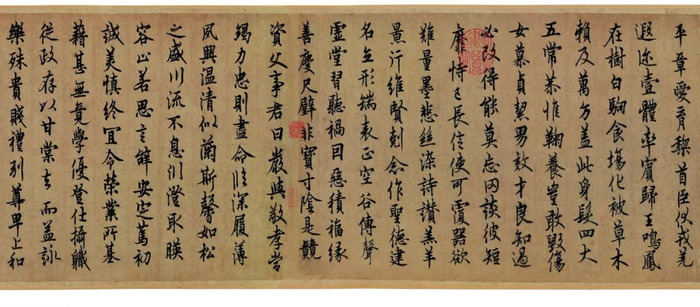 平章愛育黎首臣伏戎羌
遐迩壹體率賓歸王鳴鳳
在樹白駒食場化被草木
賴及萬方盖此身髮四大
五常恭惟鞠養豈敢毀傷
女慕貞絜男效才良知過
必改得能莫忘罔談彼短
靡恃己長信使可覆器欲
難量墨悲絲染詩讚羔羊
景行維賢剋念作聖德建
名立形端表正空谷傳聲
虛堂習聽禍因惡積福緣
善慶尺璧非寶寸陰是競
資父事君曰嚴與敬孝當
竭力忠則盡命臨深履薄
夙興温凊似蘭斯馨如松
之盛川流不息淵澄取暎
容止若思言辭安定篤初
誠美慎終宜令榮業所基
藉甚無竟學優登仕攝職
從政存以甘棠去而益詠
樂殊貴賤禮別尊卑上和